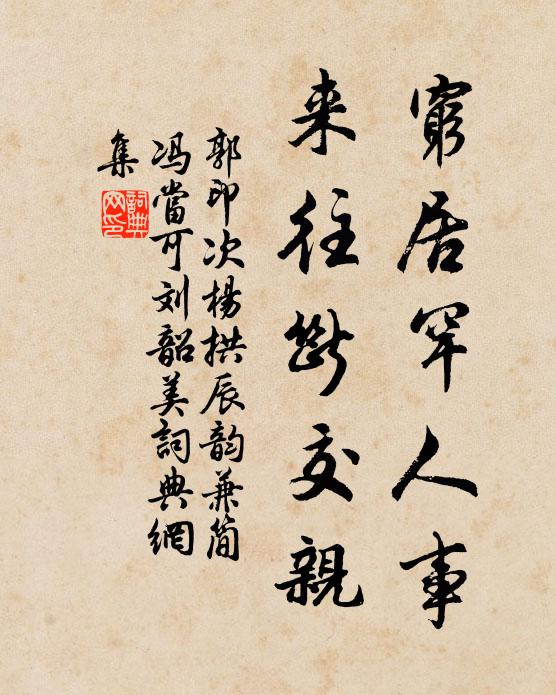 窮居罕人事
来往斷交親
郭印次楊拱辰韵兼简
冯當可刘韶美詞典網
集
詞典网印